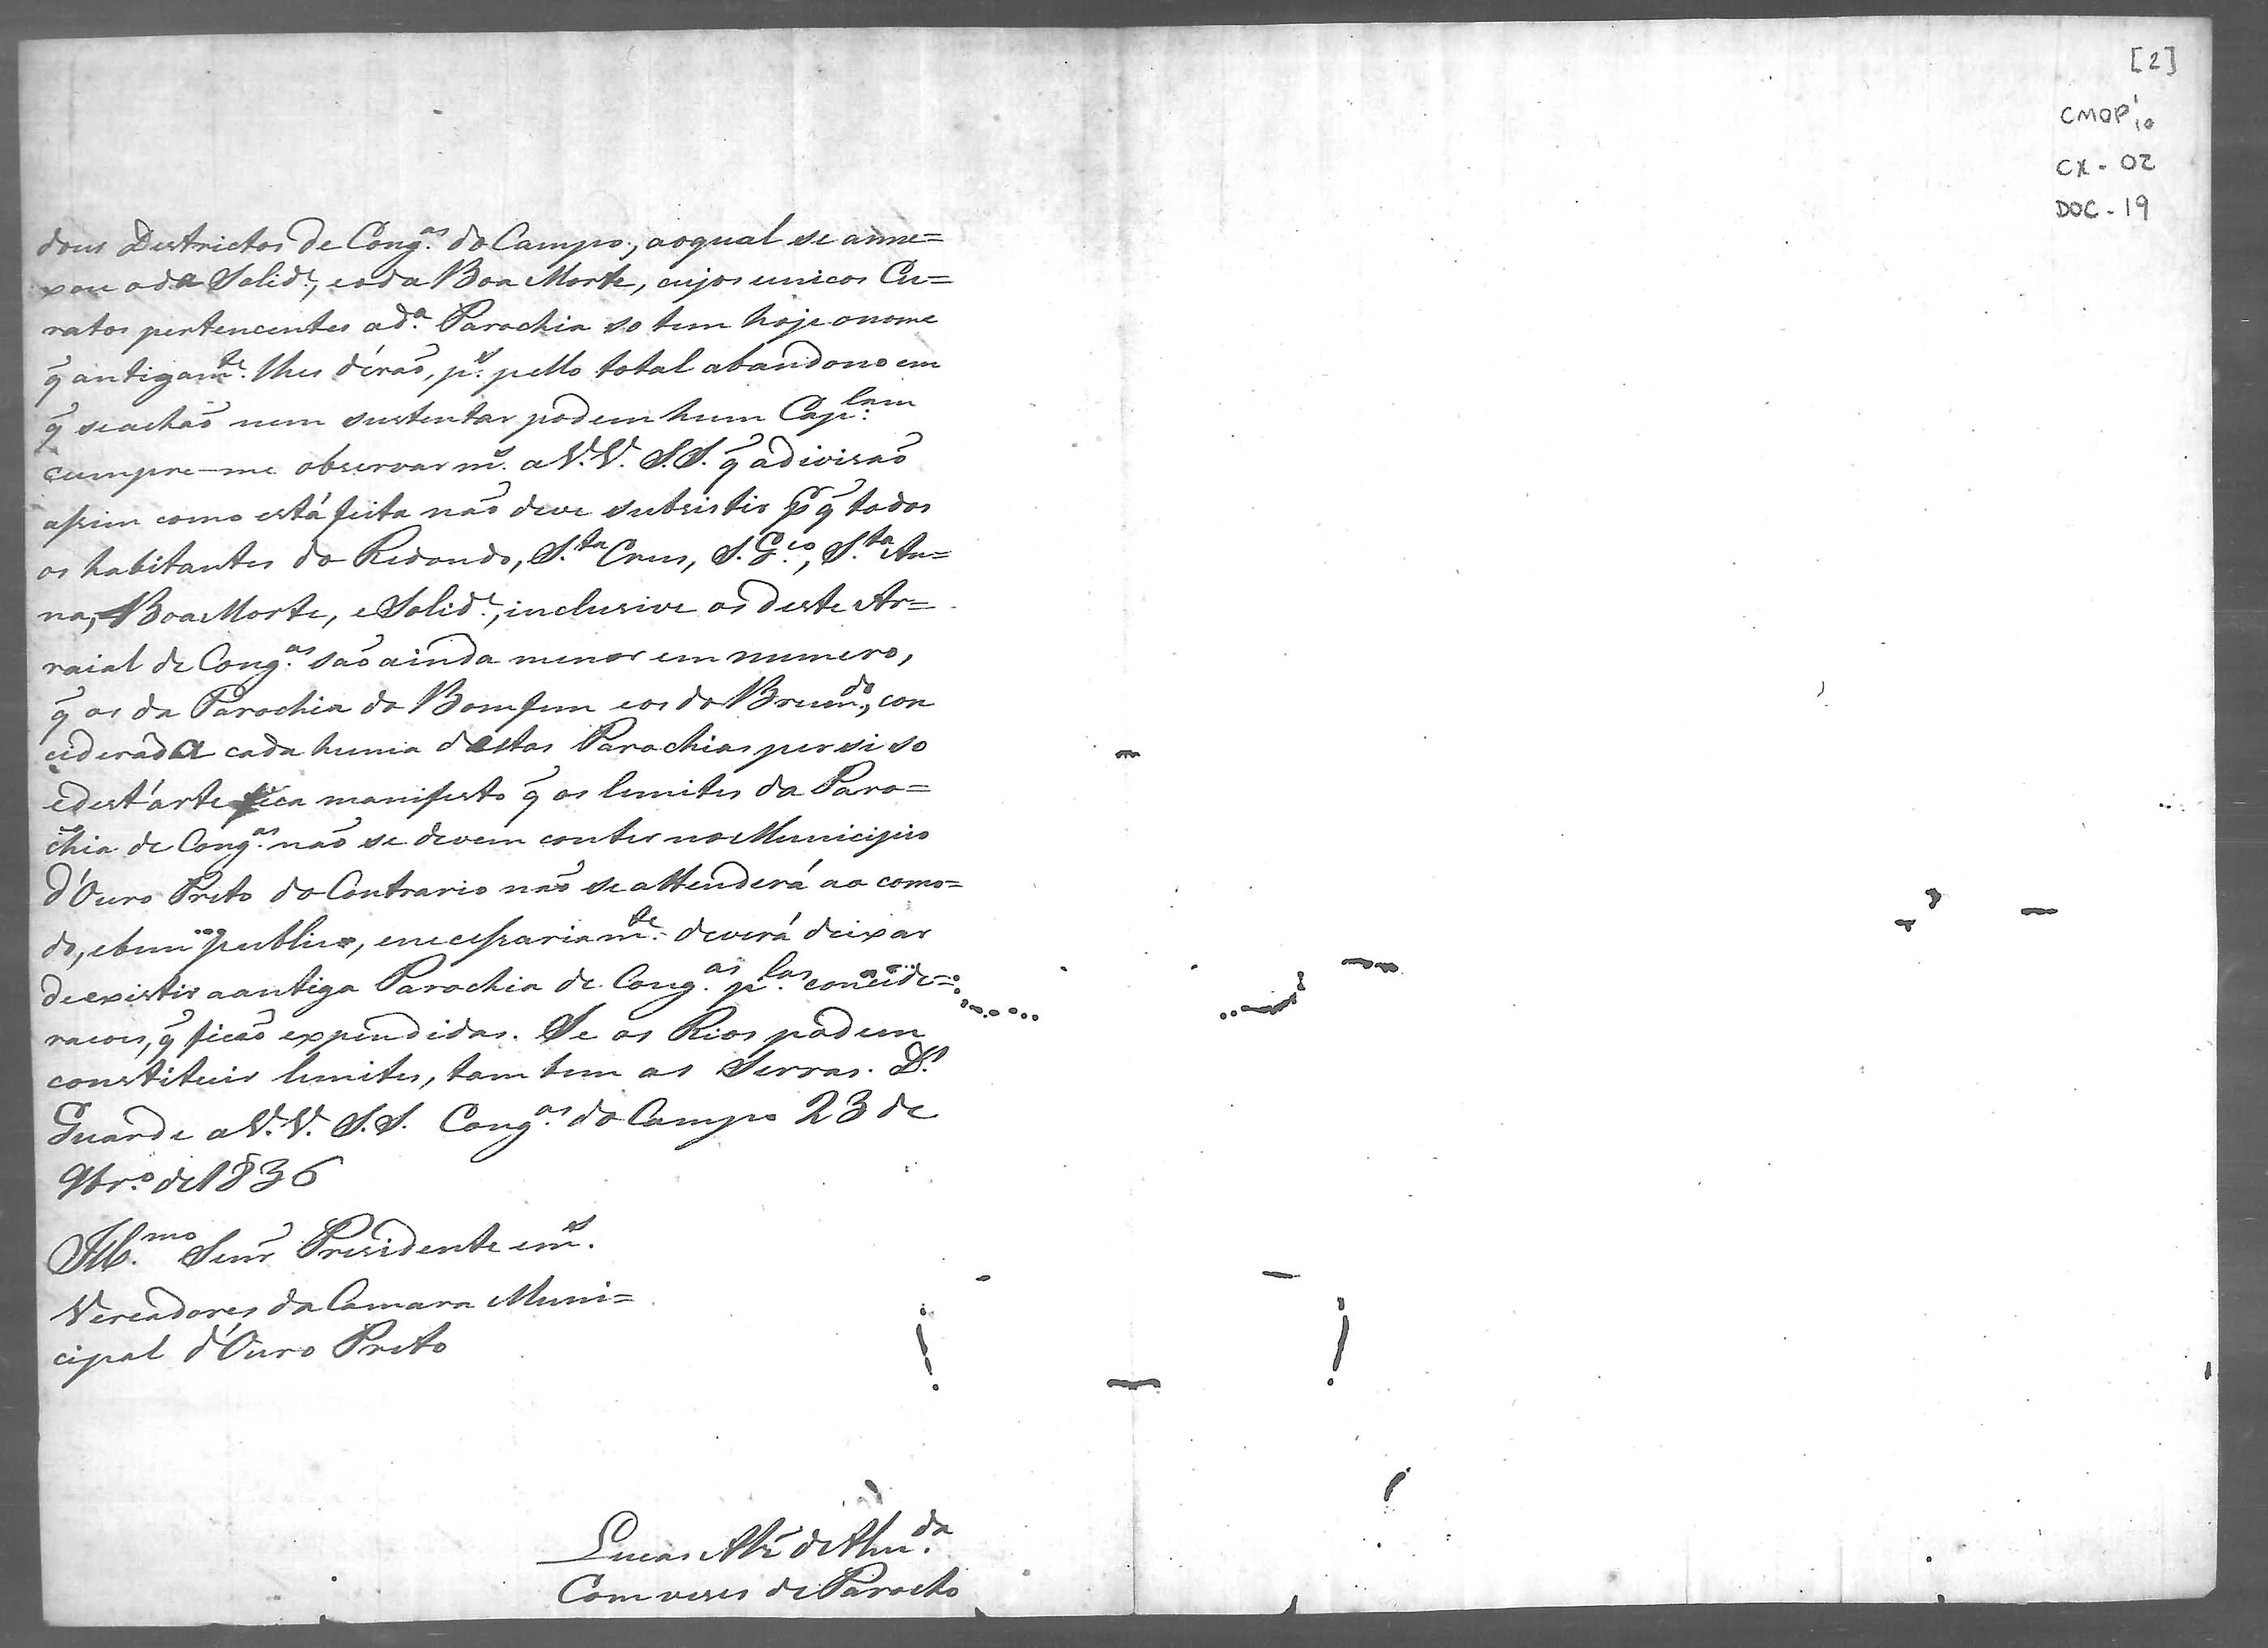 dous Destrictos de Cong.as do Campo, aoqual se anne=
xou oda Solid.e, eoda Boa Morte, cujos unicos Cu=
ratos pertencentes ad.a Parochia so tem hoje onome
q̃ antigam.te lhes déraõ, p.s pello total abandono em
q̃ seachaõ nem sustentar podem hum Cap.lam
cumpre-me observar m.s a V.V. S.S. q̃ adivisaõ
assim como está feita naõ deve subsistir p q̃ todos
os habitantes do Redondo, S.ta Crus, S. G.lo, S.ta An=
na, Boa Morte, e Solid.e, inclusive os deste Ar=
raial de Cong.as saõ ainda menor em numero,
q̃ os da Parochia do Bomfim eos do Brum.do, con
ciderada cada huma destas Parochias per si so
edest'arte fica manifesto q̃ os lemites da Paro=
chia de Cong.as naõ se devem conter no Municipio
d'Ouro Preto do Contrario naõ se attenderá ao como=
do, ebem publico, enecessariam.te deverá deixar
deexistir aantiga Parochia de Cong.as p.las concide=
racoes, q̃ ficaõ expendidas. Se os Rios podem
constituir lemites, tam bem as Serras. D.s
Guarde a V.V. S.S. Cong.as do Campo 23 de
9br.o de 1836
Ill.mo Senr̃ Presidente em.s
Vereadores da Camara Muni=
cipal d'Ouro Preto
Lucas Alz̃ de Alm.da
Com veses de Parocho
[2]
CMOP
CX - 02
DOC - 19